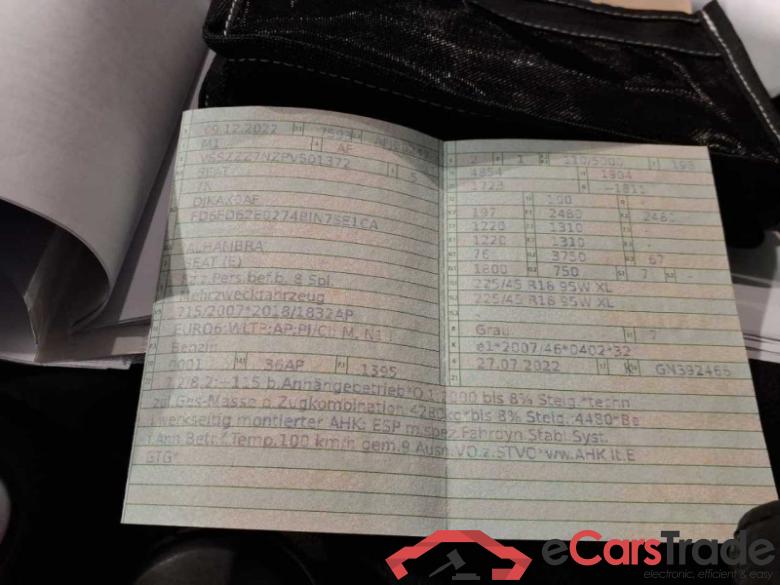 09.12.2022 7593
M1 AF
VSSZZZ7NZPV501372 5
SEAT
7N
ALHAMBRA
SEAT (E)
Pers.bef.b. 8 Spl.
Mehrzweckfahrzeug
715/2007*2018/1832AP
EURO6;WLTP;AP;PI/CI; M, N1 I
Benzin
0001 36AP 1395
2 1 110/5000
4854 1904
1723 -1811
190
197 2480
1220 1310
1220 1310 -
76 3750 67
1800 750 7 -
225/45 R18 95W XL
225/45 R18 95W XL
-
Grau 7
e1*2007/46*0402*32
27.07.2022 GN392465
b.Anhängebetrieb*O.1: bis 8% Steig.*techn
zul.Ges-Masse Zugkombination bis 8% Steig.:4480*Be
werkseitig montierter AHK: ESP m.spez.Fahrdyn.Stabi.Syst.
100 km/h gem.9.Ausn.VO.z.STVO*ww.AHK lt.E
GTG*
eCarsTrade
electronic, efficient & easy